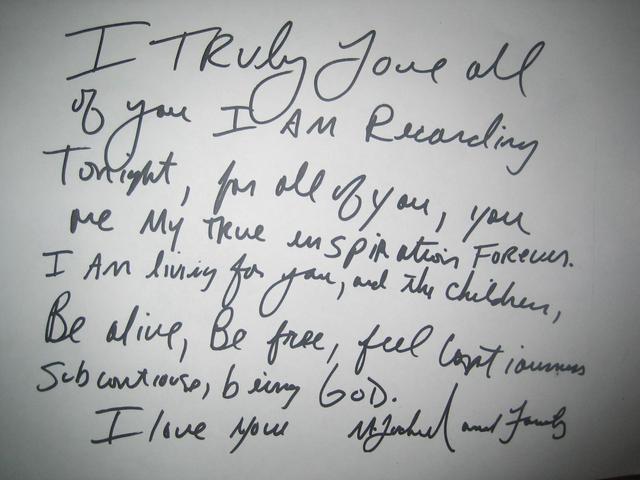 I TRuly Love all
of you I AM Recording
Tonight, for all of you, you
are My TRue inSPiRation FoReveR.
I AM living for you, and the children,
Be alive, Be free, feel
being GOD.
I love you and Family